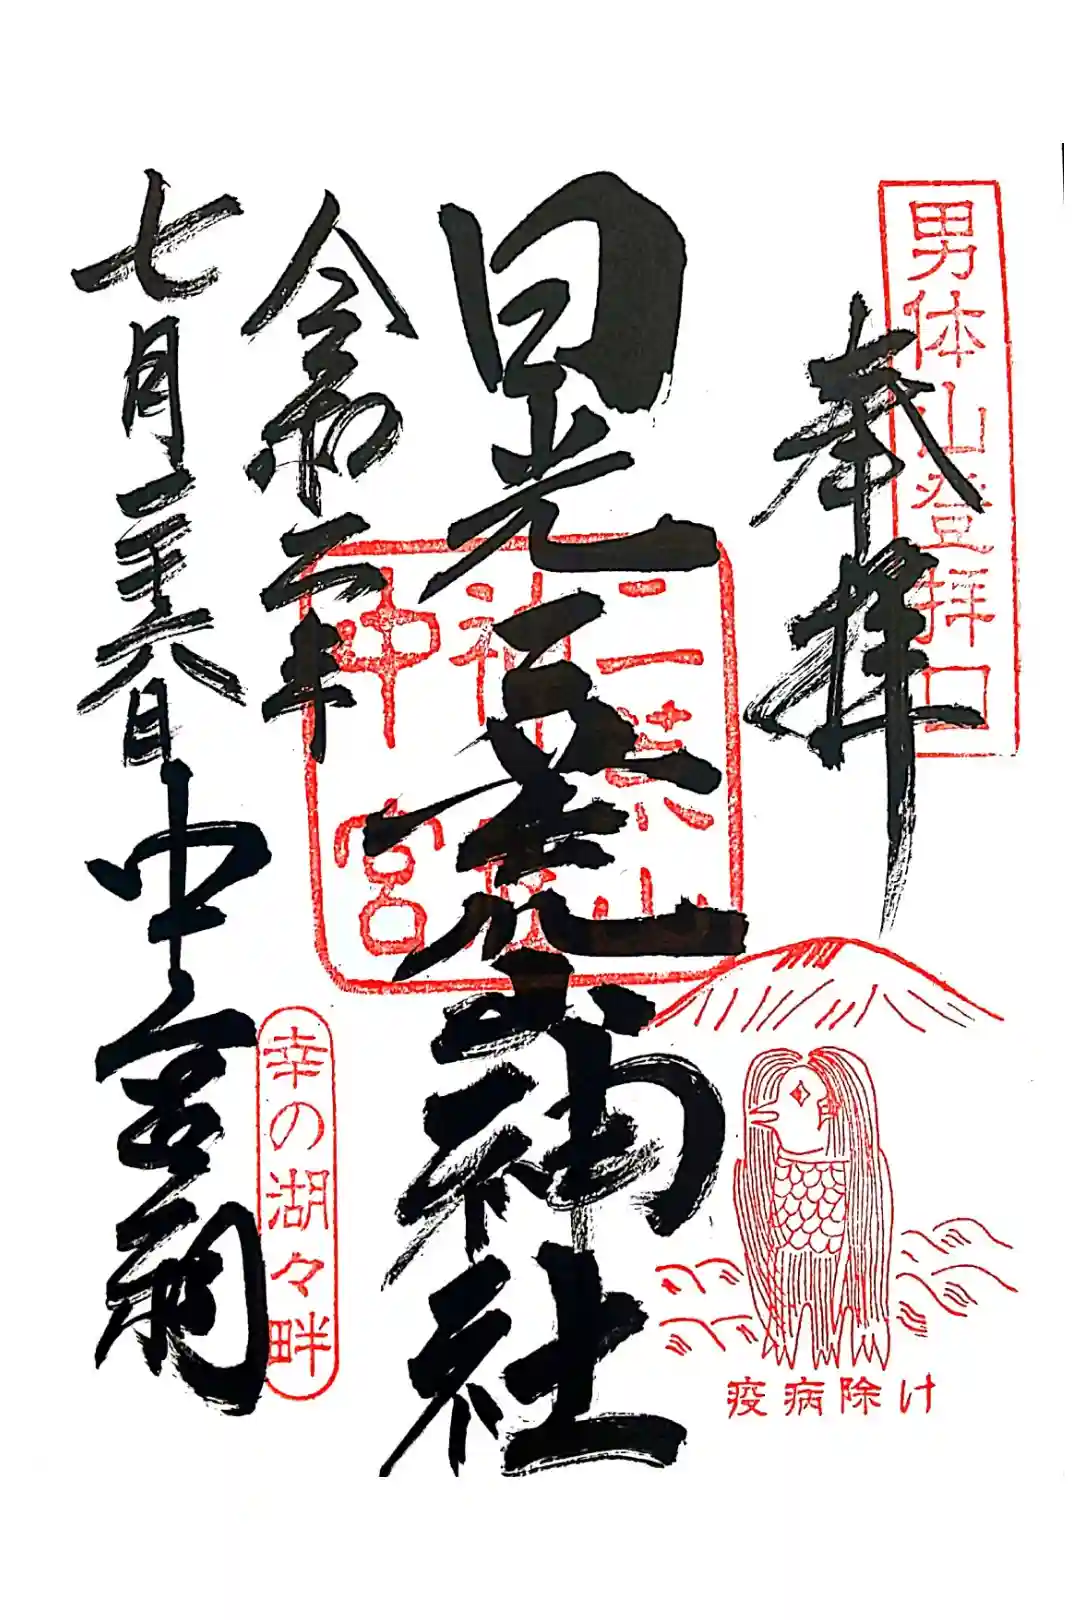 男体山登拝口
奉拝
日光二荒山神社
二荒山
神社
中宮
令和二年
七月二十六日 中宮祠
幸の湖々畔
疫病除け